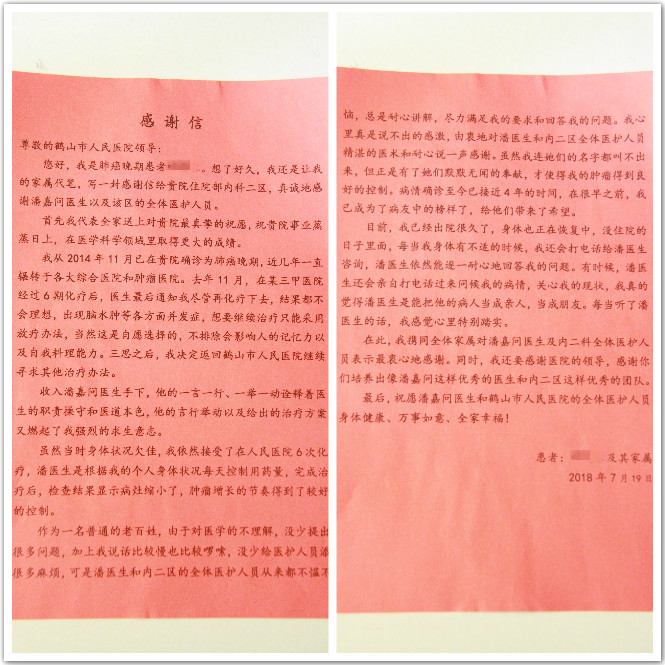 感谢信
尊敬的鹤山市人民医院领导：
您好，我是肺癌晚期患者 。想了好久，我还是让我
的家属代笔，写一封感谢信给贵院住院部内科二区，真诚地感
谢潘嘉问医生以及该区的全体医护人员。
首先我代表全家送上对贵院最真挚的祝愿，祝贵院事业蒸
蒸日上，在医学科学领域里取得更大的成绩。
我从 2014 年 11 月已在贵院确诊为肺癌晚期，近几年一直
辗转于各大综合医院和肿瘤医院。去年 11 月，在某三甲医院
经过 6 期化疗后，医生最后通知我尽管再化疗下去，结果都不
会理想，出现脑水肿等各方面并发症，想要继续治疗只能采用
放疗办法，当然这是自愿选择的，不排除会影响人的记忆力以
及自我料理能力。三思之后，我决定返回鹤山市人民医院继续
寻求其他治疗办法。
收入潘嘉问医生手下，他的一言一行、一举一动诠释着医
生的职责操守和医道本色，他的言行举动以及给出的治疗方案
又燃起了我强烈的求生意志。
虽然当时身体状况欠佳，我依然接受了在人民医院 6 次化
疗，潘医生是根据我的个人身体状况每天控制用药量，完成治
疗后，检查结果显示病灶缩小了，肿瘤增长的节奏得到了较好
的控制。
作为一名普通的老百姓，由于对医学的不理解，没少提出
很多问题，加上我说话比较慢也比较啰嗦，没少给医护人员添
很多麻烦，可是潘医生和内二区的全体医护人员从来都不愠不
恼，总是耐心讲解，尽力满足我的要求和回答我的问题。我心
里真是说不出的感激，由衷地对潘医生和内二区全体医护人员
精湛的医术和耐心说一声感谢。虽然我连她们的名字都叫不出
来，但正是有了她们默默无闻的奉献，才使得我的肿瘤得到良
好的控制。病情确诊至今已接近 4 年的时间，在很早之前，我
已成为了病友中的榜样了，给他们带来了希望。
目前，我已经出院很久了，身体也正在恢复中，没住院的
日子里面，每当我身体有不适的时候，我还会打电话给潘医生
咨询，潘医生依然能逐一耐心地回答我的问题。有时候，潘医
生还会亲自打电话过来问候我的病情，关心我的现状，我真的
觉得潘医生是能把他的病人当成亲人，当成朋友。每当听了潘
医生的话，我感觉心里特别踏实。
在此，我携同全体家属对潘医生及内二科全体医护人
员表示最衷心地感谢。同时，我还要感谢医院的领导，感谢你
们培养出像潘嘉问这样优秀的医生和内二区这样优秀的团队。
最后，祝愿潘嘉问医生和鹤山市人民医院的全体医护人员
身体健康、万事如意、全家幸福！
患者： 及其家属
2018 年 7 月 19 日